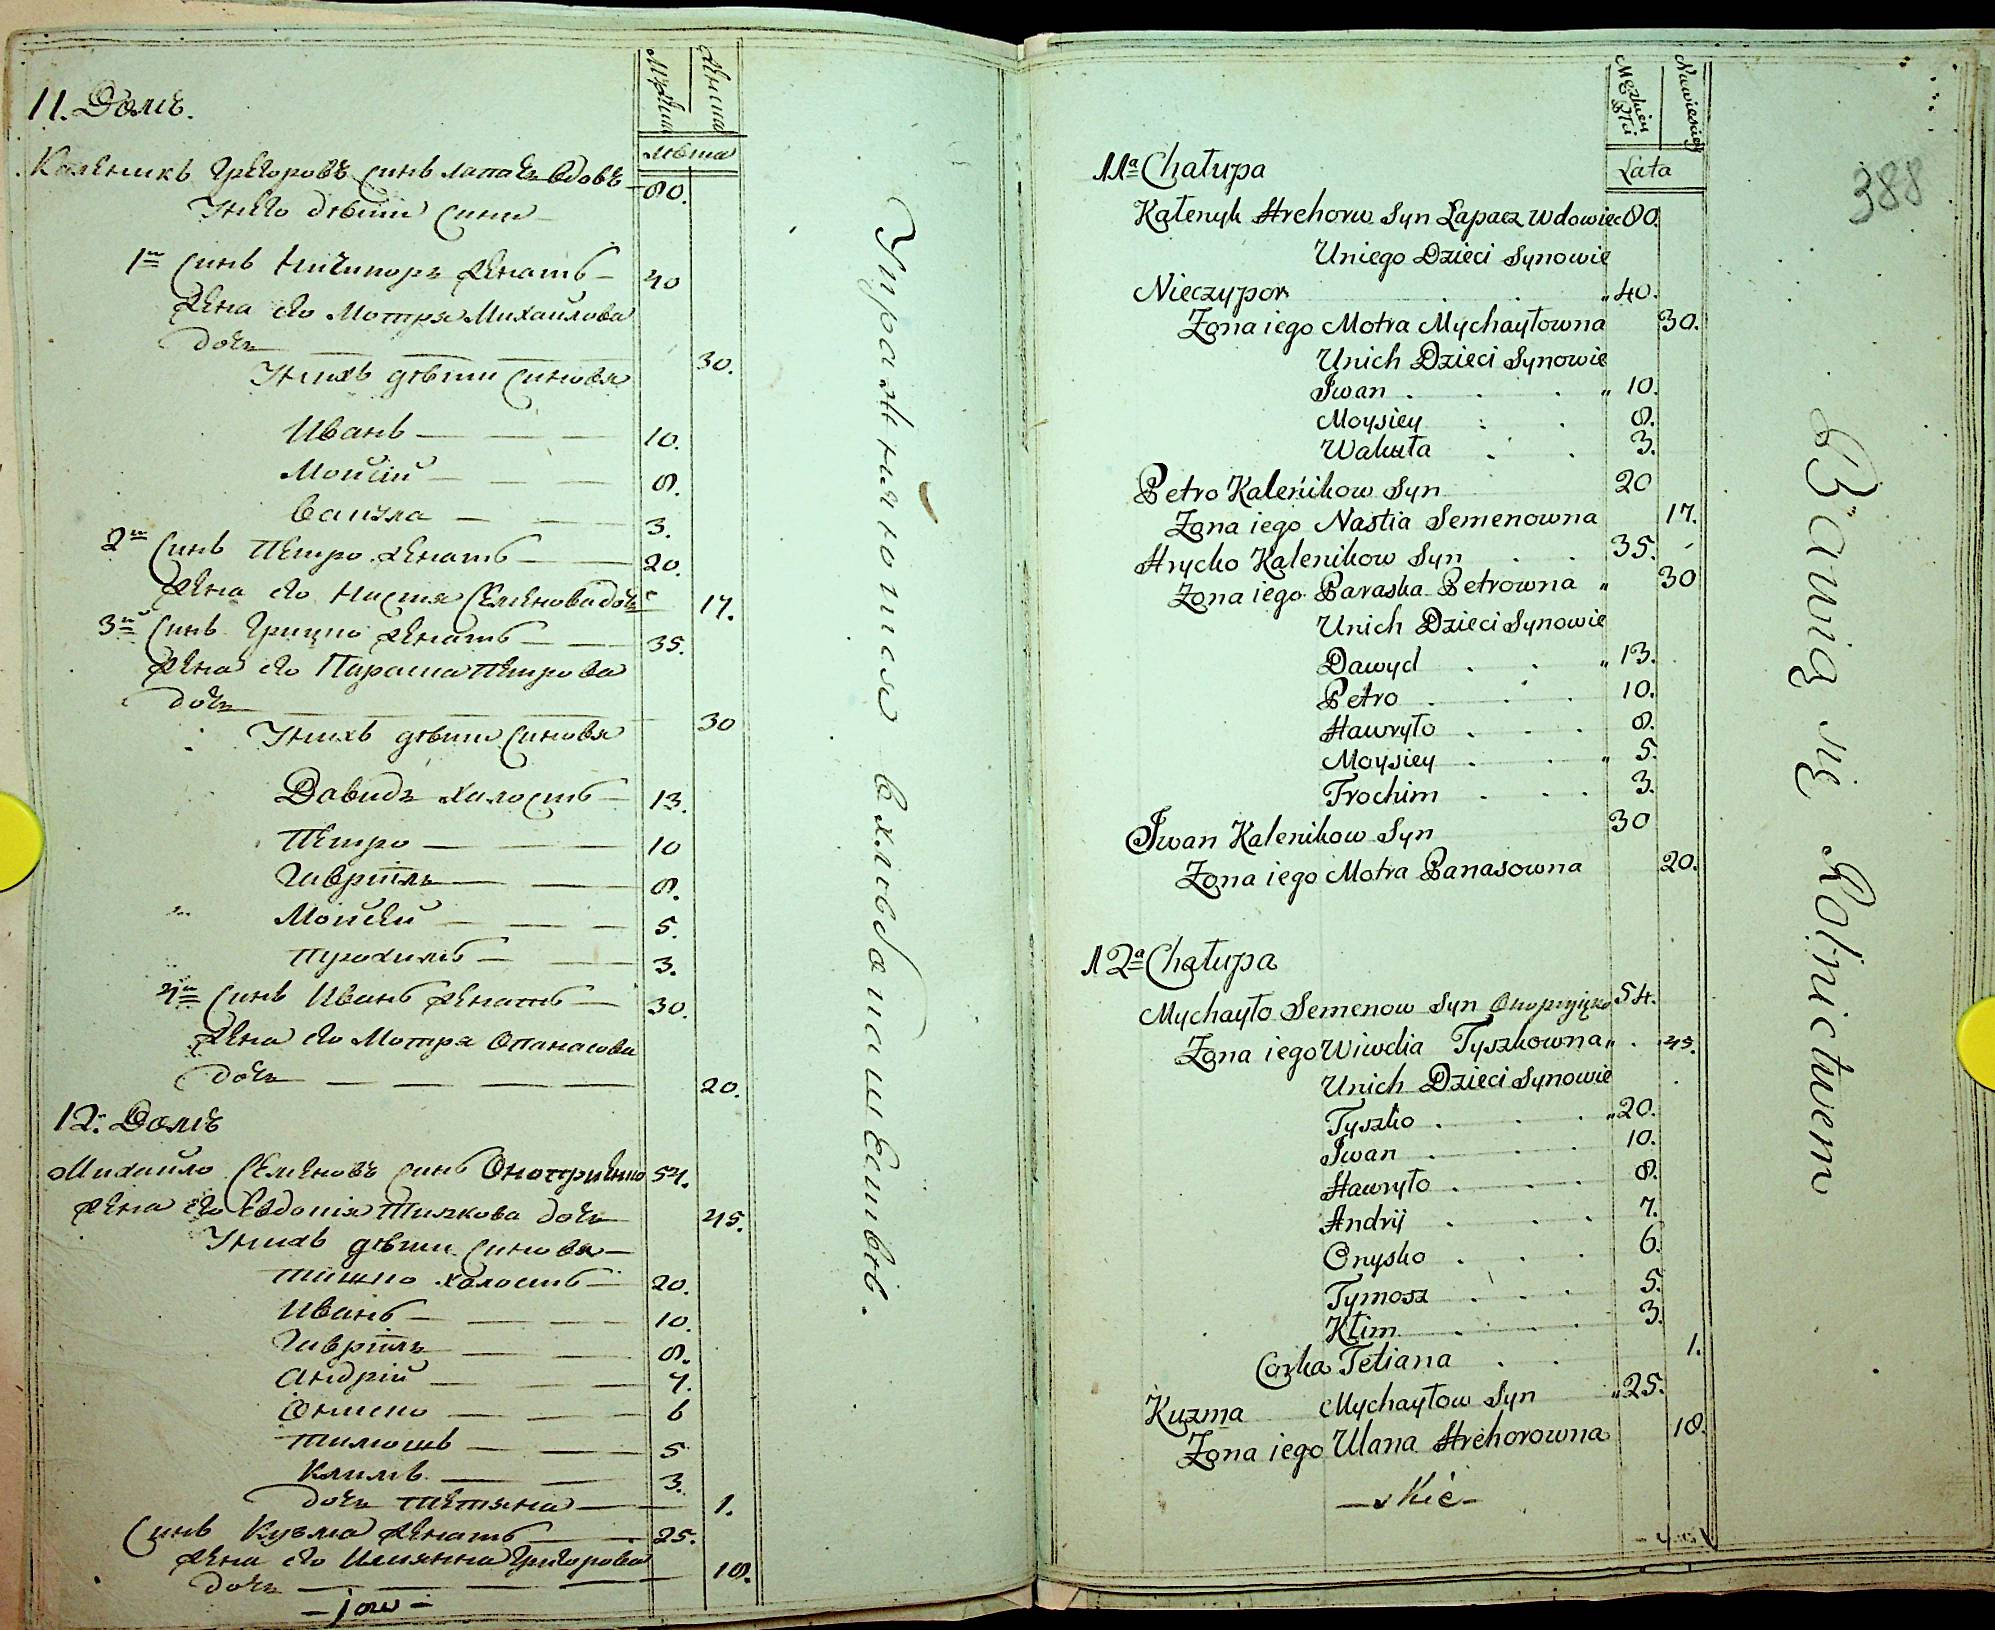 Мужска
Женска
лѣта
11. Домъ.
Каленикъ Григоровъ синъ Лапачъ вдовъ 80.
У него дѣти сини
1й синъ Ничипоръ женатъ 40
жена его Мотря Михайлова
дочь 30.
У нихъ дѣти синовя
Иванъ 10.
Мойсій 8.
Вакула 3.
2й синъ Петро женатъ 20.
жена его Настя Семенова дочь 17.
3й синъ Грицко женатъ 35.
жена его Параска Петрова
дочь 30
У нихъ дѣти синовя
Давидъ холостъ 13.
Петро 10
Гаврiилъ 8.
Мойсей 5.
Трохимъ 3.
4й синъ Иванъ женатъ 30.
жена его Мотря Опанасова
дочь 20.
12. Домъ
Михайло Семеновъ синъ Оноприенко 54.
жена его Евдокія Тишкова дочь 45.
У нихъ дѣти синовя
Тишко холостъ 20.
Иванъ 10.
Гавріилъ 8.
Андрій 7.
Ониско 6
Тимошъ 5
Климъ 3.
дочь Тетяна 1.
Синъ Кузма женатъ 25.
жена его Илиянна Григорова
дочь 18.
Упражняются в хлѣбопашествѣ.
388
Męzkiey
Płci
Niewieskiey
Lata
11ª Chałupa
Kałenyk Hrehorw Syn Łapacz Wdowiec 80.
U niego Dzieci Synowie
Nieczypor „ 40.
Zona iego Motra Mychayłowna 30.
Unich Dzieci Synowie
Iwan „ 10.
Moysiey 8.
Wakuła 3.
Petro Kalenikow Syn 20
Zona iego Nastia Semenowna 17.
Hrycko Kalenikow Syn 35.
Zona iego Paraska Petrowna „ 30
Unich Dzieci Synowie
Dawyd „ 13.
Petro 10.
Hawryło 8.
Moysiey „ 5.
Trochim 3.
Iwan Kalenikow Syn 30
Zona iego Motra Panasowna 20.
12ª Chałupa
Mychayło Semenow Syn 54.
Zona iego Wiwdia Tyszkowna „ 45.
Unich Dzieci Synowie
Tyszko „ 20.
Iwan 10.
Hawryło 8.
Andrij 7.
Onysko 6.
Tymosz 5.
Kłim 3.
Corka Tetiana 1.
Kuzma Mychayłow Syn „ 25.
Zona iego Ulana Hrehorowna 18.
Bawią się Rolnictwem